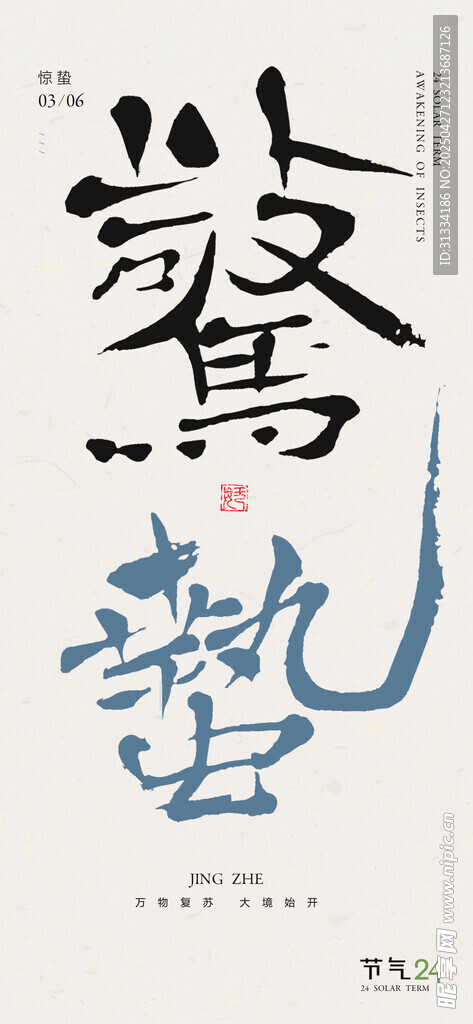 惊蛰
03/06
24 SOLAR TERM
AWAKENING OF INSECTS
驚
蟄
JING ZHE
万物复苏 大境始开
节气24
24 SOLAR TERM
ID:31334186 NO:20250427123213687126
昵享网 www.nipic.cn